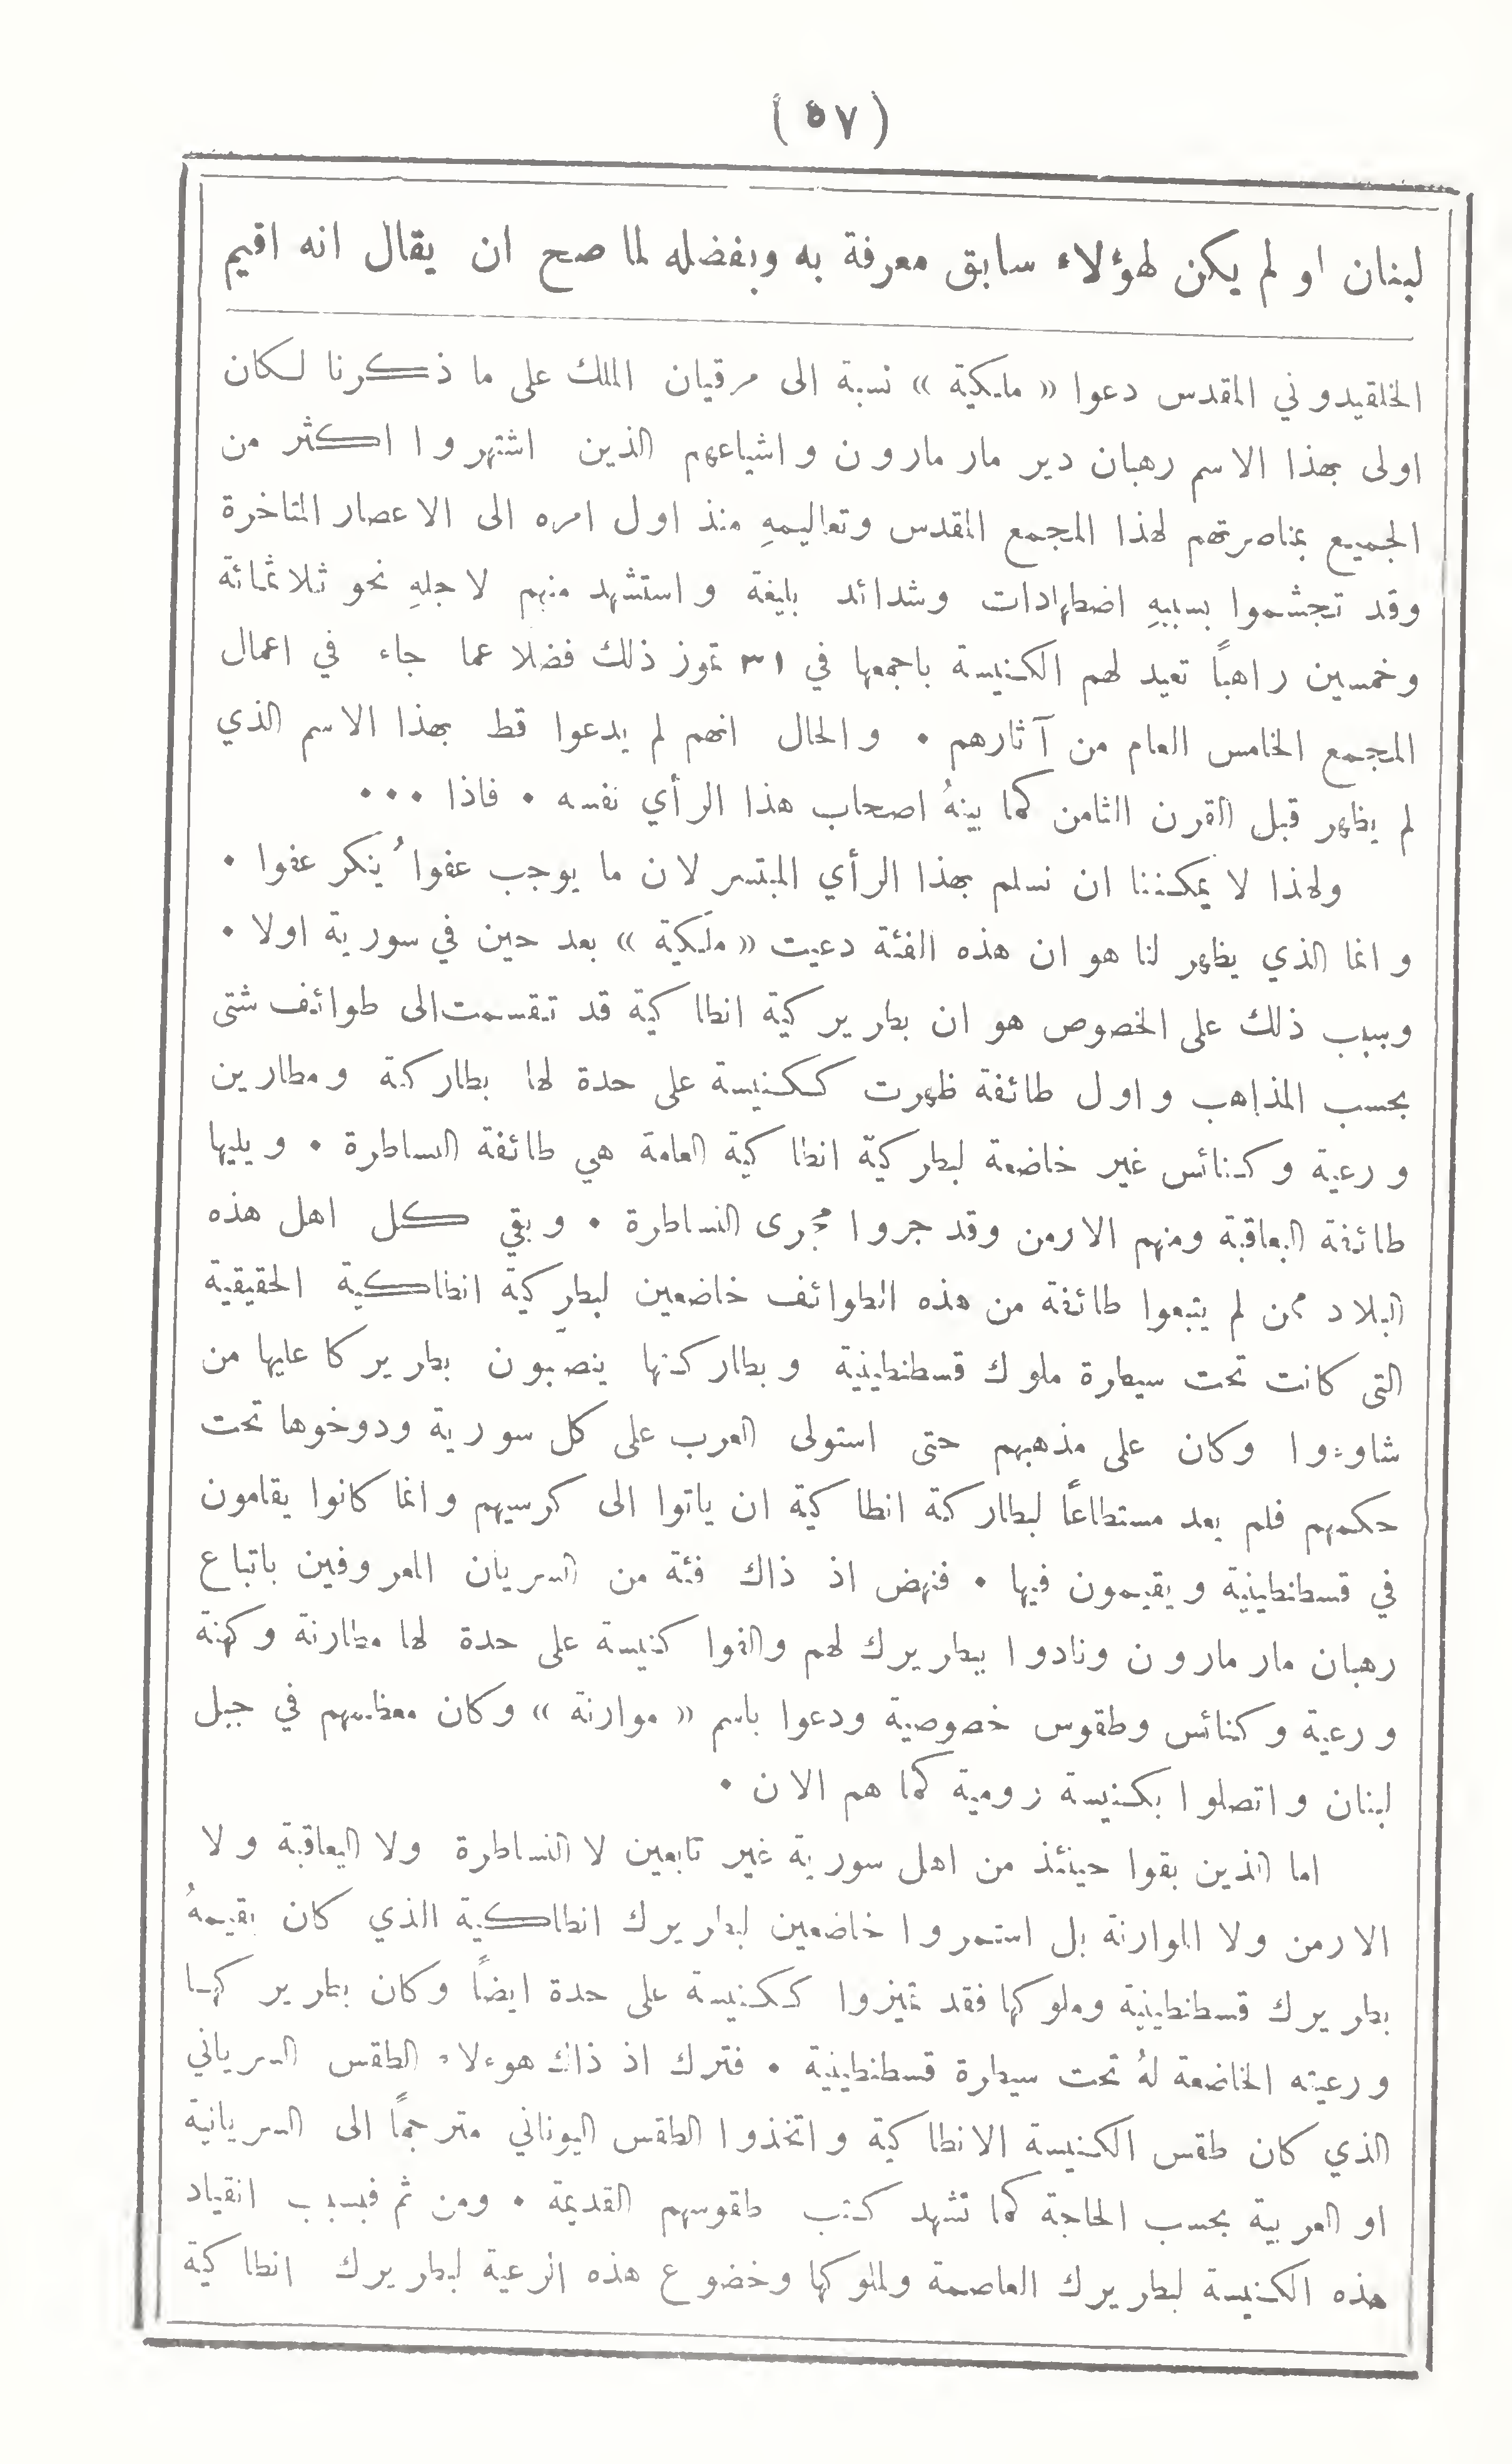 (٥٧)
لبنان او لم يكن لهؤلاء سابق معرفة به وبفضله لما صح ان يقال انه اقيم
الخلقيدوني المقدس دعوا « ملكية » نسبة الى مرقيان الملك على ما ذكرنا لكان
اولى بهذا الاسم رهبان دير مار مارون واشياعهم الذين اشتهروا اكثر من
الجميع بمناصرتهم لهذا المجمع المقدس وتعاليمهِ منذ اول امره الى الاعصار المتاخرة
وقد تجشموا بسببهِ اضطهادات وشدائد بليغة واستشهد منهم لاجلهِ نحو ثلاثمائة
وخمسين راهباً تعيد لهم الكنيسة باجمعها في ٣١ تموز ذلك فضلا عما جاء في اعمال
المجمع الخامس العام من آثارهم ٠ والحال انهم لم يدعوا قط بهذا الاسم الذي
لم يظهر قبل القرن الثامن كما بينهُ اصحاب هذا الرأي نفسه ٠ فاذا ٠٠٠
ولهذا لا يمكننا ان نسلم بهذا الرأي المبتسر لان ما يوجب عفوا ُينكر عفوا ٠
وانما الذي يظهر لنا هو ان هذه الفئة دعيت « ملَكية » بعد حين في سورية اولا ٠
وسبب ذلك على الخصوص هو ان بطريركية انطاكية قد تقسمت الى طوائف شتى
بحسب المذاهب واول طائفة ظهرت ككنيسة على حدة لها بطاركة ومطارين
ورعية وكنائس غير خاضعة لبطركيّة انطاكية العامة هي طائفة النساطرة ٠ ويليها
طائفة اليعاقبة ومنهم الارمن وقد جروا مجرى النساطرة ٠ وبقي كل اهل هذه
البلاد ممن لم يتبعوا طائفة من هذه الطوائف خاضعين لبطرِكية انطاكية الحقيقية
التي كانت تحت سيطرة ملوك قسطنطينية وبطاركتها ينصبون بطريركا عليها من
شاوءوا وكان على مذهبهم حتى استولى العرب على كل سورية ودوخوها تحت
حكمهم فلم يعد مستطاعاً لبطاركة انطاكية ان ياتوا الى كرسيهم وانما كانوا يقامون
في قسطنطينية ويقيمون فيها ٠ فنهض اذ ذاك فئة من السريان المعروفين باتباع
رهبان مار مارون ونادوا ببطريرك لهم والفوا كنيسة على حدة لها مطارنة وكهنة
ورعية وكنائس وطقوس خصوصية ودعوا باسم « موارنة » وكان معظمهم في جبل
لبنان واتصلوا بكنيسة رومية كما هم الان ٠
اما الذين بقوا حينئذ من اهل سورية غير تابعين لا النساطرة ولا اليعاقبة ولا
الارمن ولا الموارنة بل استمروا خاضعين لبطريرك انطاكية الذي كان يقيمهُ
بطريرك قسطنطينية وملوكها فقد تميزوا ككنيسة على حدة ايضاً وكان بطريركها
ورعيته الخاضعة لهُ تحت سيطرة قسطنطينية ٠ فترك اذ ذاك هوءلاء الطقس السرياني
الذي كان طقس الكنيسة الانطاكية واتخذوا الطقس اليوناني مترجماً الى السريانية
او العربية بحسب الحاجة كما تشهد كتب طقوسهم القديمة ٠ ومن ثم فبسبب انقياد
هذه الكنيسة لبطريرك العاصمة ولملوكها وخضوع هذه الرعية لبطريرك انطاكية